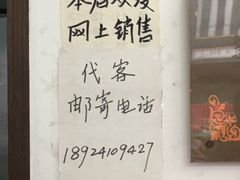 本店以及
网上销售
代客
邮寄电话
18924109427